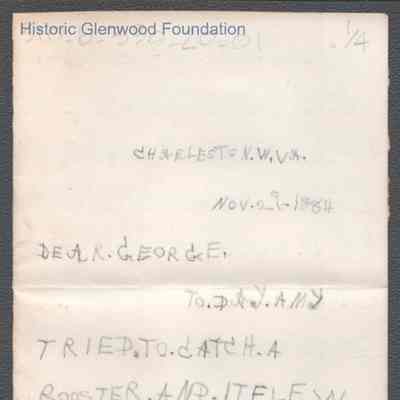 Historic Glenwood Foundation
1/4
CHARLESTON.W.VA.
NOV.2 1884
DEAR.GEORGE.
TO.DAY.AMY
TRIED.TO.CATCH.A
ROOSTER.AND.IT.FLEW